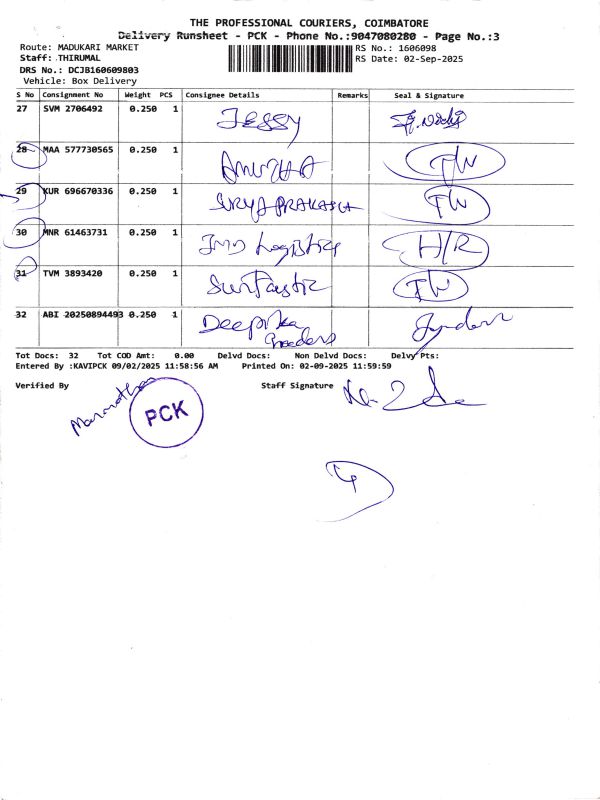 THE PROFESSIONAL COURIERS, COIMBATORE
Delivery Runsheet - PCK - Phone No.:9047080280 - Page No.:3
Route: MADUKARI MARKET RS No.: 1606098
Staff: THIRUMAL RS Date: 02-Sep-2025
DRS No.: DCJB160609803
Vehicle: Box Delivery
S No Consignment No Weight PCS Consignee Details Remarks Seal & Signature
27 SVM 2706492 0.250 1 Jessy
28 MAA 577730565 0.250 1 ANUSHA
29 KUR 696670336 0.250 1 SURYA PRAKASH
30 MNR 61463731 0.250 1 Logistics H/R
31 TVM 3893420 0.250 1
32 ABI 20250894493 0.250 1 Deepika
Traders
Tot Docs: 32 Tot COD Amt: 0.00 Delvd Docs: Non Delvd Docs: Delvy Pts:
Entered By :KAVIPCK 09/02/2025 11:58:56 AM Printed On: 02-09-2025 11:59:59
Verified By Staff Signature
PCK